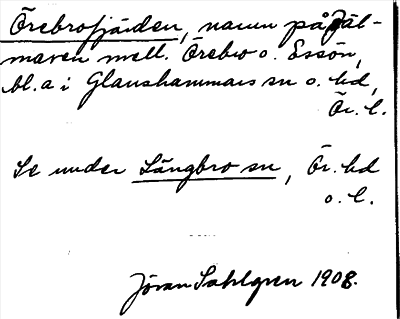 Örebrofjärden, namn på Jäl-
maren mell. Örebro o. Essön,
bl.a i Glanshammars sn o. hd,
Ör. l.
Se under Längbro sn, Ör. hd
o. l.
Jöran Sahlgren 1908.